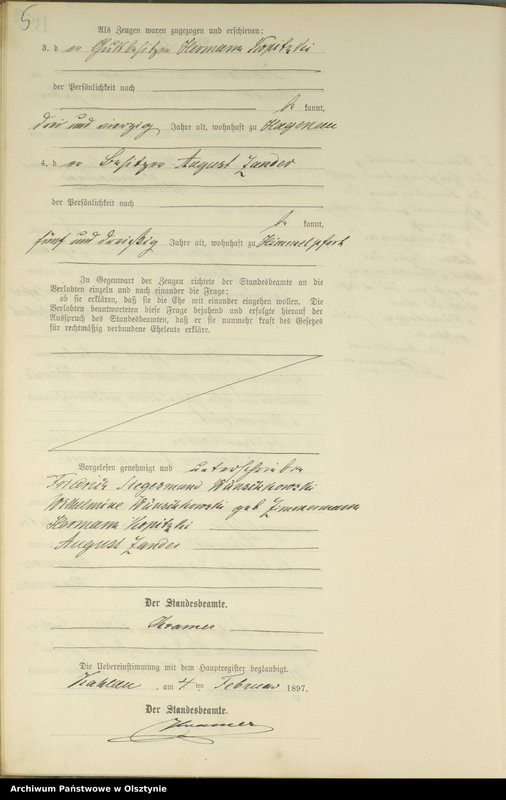 5
Als Zeugen waren zugezogen und erschienen:
3. d er Gutsbesitzer Hermann Kopitzki
der Persönlichkeit nach
be kannt,
drei und vierzig Jahre alt, wohnhaft zu Hagenau
4. d er Besitzer August Zander
der Persönlichkeit nach
be kannt,
fünf und dreißig Jahre alt, wohnhaft zu Himmelpfort
In Gegenwart der Zeugen richtete der Standesbeamte an die
Verlobten einzeln und nach einander die Frage:
ob sie erklären, daß sie die Ehe mit einander eingehen wollen. Die
Verlobten beantworteten diese Frage bejahend und erfolgte hierauf der
Ausspruch des Standesbeamten, daß er sie nunmehr kraft des Gesetzes
für rechtmäßig verbundene Eheleute erkläre.
Vorgelesen genehmigt und unterschrieben
Friedrich Siegesmund
Wilhelmine geb Zimmermann
Hermann Kopitzki
August Zander
Der Standesbeamte.
Kramer
Die Uebereinstimmung mit dem Hauptregister beglaubigt.
Kahlau, am 4 ten Februar 1897.
Der Standesbeamte.
Kramer
Archiwum Państwowe w Olsztynie